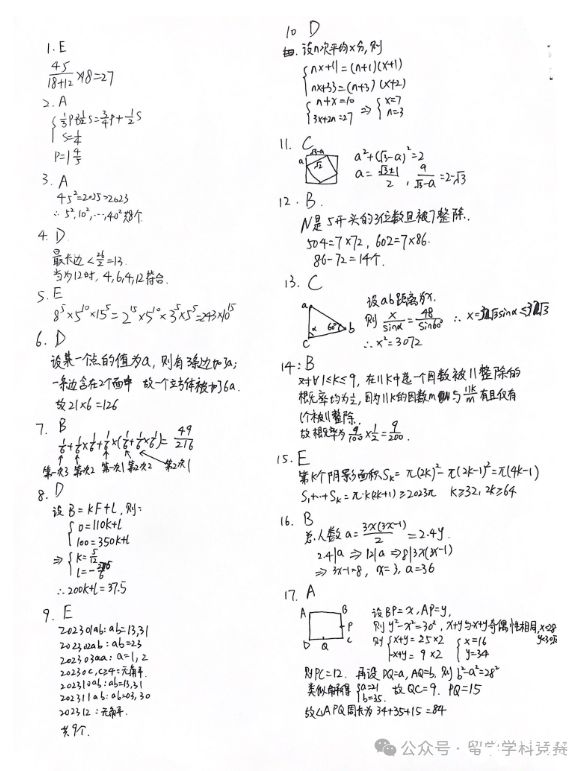 1. E
45/(18+12) × 18 = 27
2. A
S = 1/4
P = 1 4/5
3. A
45² = 2025 > 2023
∴ 5², 10², ⋯, 40² 共8个
4. D
最长边 < 26/2 = 13.
当为12时, 4, 6, 4, 12 符合.
5. E
8⁵×5¹⁰×15⁵ = 2¹⁵×5¹⁰×3⁵×5⁵ = 243×10¹⁵
6. D
设某一个点的值为a, 则有3条边加3a;
一条边含在2个面中 故一个立方体被加了6a.
故 21×6 = 126
7. B
= 49/216
第一次3 第二次2 第一次1 第二次2 第三次1
8. D
设 B = kF + L, 则:
0 = 110k + L
100 = 350k + L
⇒ k = 5/12
∴ 200k + L = 37.5
9. E
202301ab: ab=13,31
202302ab: ab=23
202303aa: a=1, 2
202310ab: ab=13,31
202311ab: ab=03, 30
202312: 无解.
共9个.
10 D
设n次平均x分, 则
nx+11 = (n+1)(x+1)
nx+33 = (n+3)(x+2)
n+x=10
3x+2n=27 ⇒ x=7 n=3
11. C
a √3-a √2
a²+(√3-a)² = 2
12. B.
N是5开头的3位数且被7整除.
504=7×72, 602=7×86.
86-72=14个.
13. C
a b c α 60°
设ab距离为x.
则 x/sinα = 48/sin60°
∴ x=32√3 sinα ≤ 32√3
∴ x²=3072
14: B
对∀1≤k≤9, 在11k中选一个因数被11整除的
概率均为½, 因为11k的因数m与11k/m有且仅有
1个被11整除.
故概率为 9/100 × 1/2 = 9/200.
15. E
第k个阴影面积 Sₖ = π(2k)² - π(2k-1)² = π(4k-1)
S₁+⋯+Sₖ = π·k(2k+1) ≥ 2023π k≥32, 2k≥64
16. B
总人数 a = 3x(3x-1)/2 = 2.4y.
⇒ 3x-1=8, x=3, a=36
17. A
A B P C D Q
设BP=x, AP=y,
则 y²-x²=30², x+y与x-y奇偶性相同,
x=16
y=34
则PC=12. 再设DQ=a, AQ=b, 则b²-a²=28²
a=21
b=35. 故QC=9. PQ=15
故△APQ周长为 34+35+15=84
公众号 · 留学学科竞赛